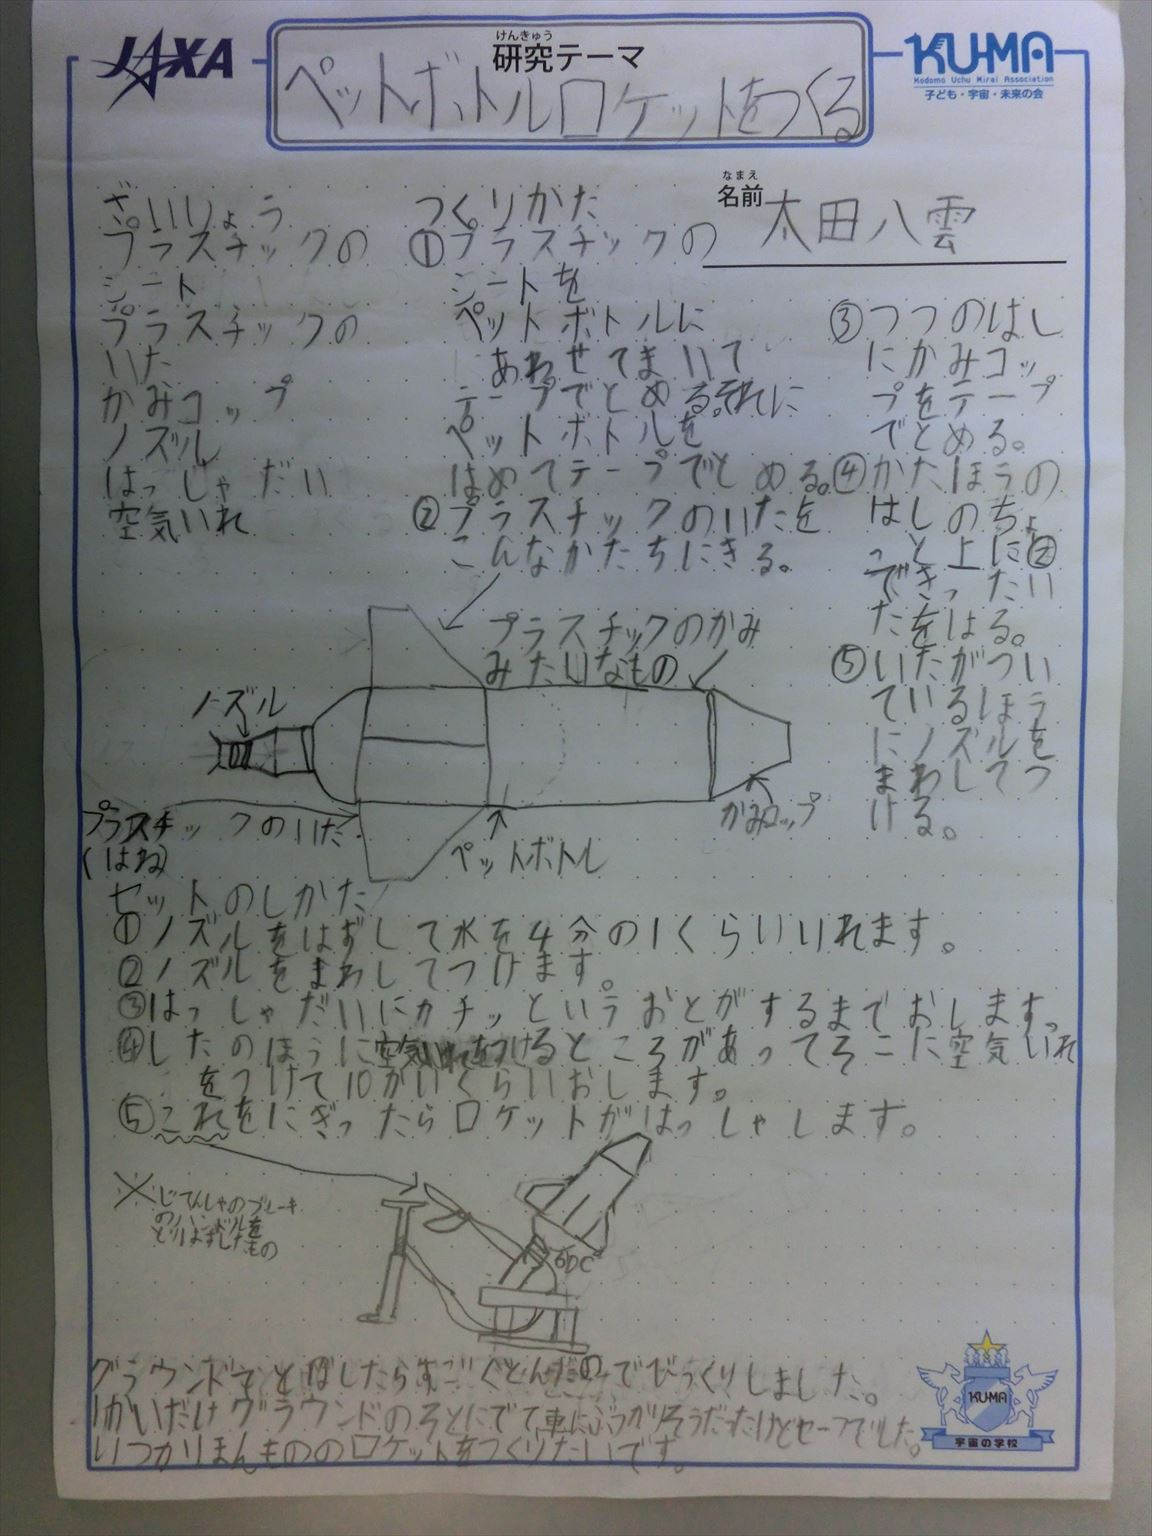 JAXA
けんきゅう
研究テーマ
ペットボトルロケットをつくる
KU-MA
Kodomo Uchu Mirai Association
子ども・宇宙・未来の会
なまえ
名前
太田八雲
ざいりょう
プラスチックの
シート
プラスチックの
いた
かみコップ
ノズル
はっしゃだい
空気いれ
つくりかた
①プラスチックの
シートを
ペットボトルに
あわせてまいて
テープでとめる。それに
ペットボトルを
はめてテープでとめる。
②プラスチックのいたを
こんなかたちにきる。
③つつのはし
にかみコッ
プをテープ
でとめる。
④かたほうの
はしのちょ
っと上に②
できったい
たをはる。
⑤いたがつい
ているほう
にノズルを
まわしてつ
ける。
プラスチックのかみ
みたいなもの
ノズル
かみコップ
プラスチックのいた
(はね)
ペットボトル
セットのしかた
①ノズルをはずして水を4分の1くらいいれます。
②ノズルをまわしてつけます。
③はっしゃだいにカチッというおとがするまでおします。
④したのほうに空気いれをつけるところがあってそこに空気いれ
をつけて10かいくらいおします。
⑤これをにぎったらロケットがはっしゃします。
※じてんしゃのブレーキ
のハンドルを
とりはずしたもの
グラウンドでとばしたらすごくとんだのでびっくりしました。
1かいだけグラウンドのそとにでて車にぶつかりそうだったけどセーフでした。
いつかほんもののロケットをつくりたいです。
KU-MA
宇宙の学校